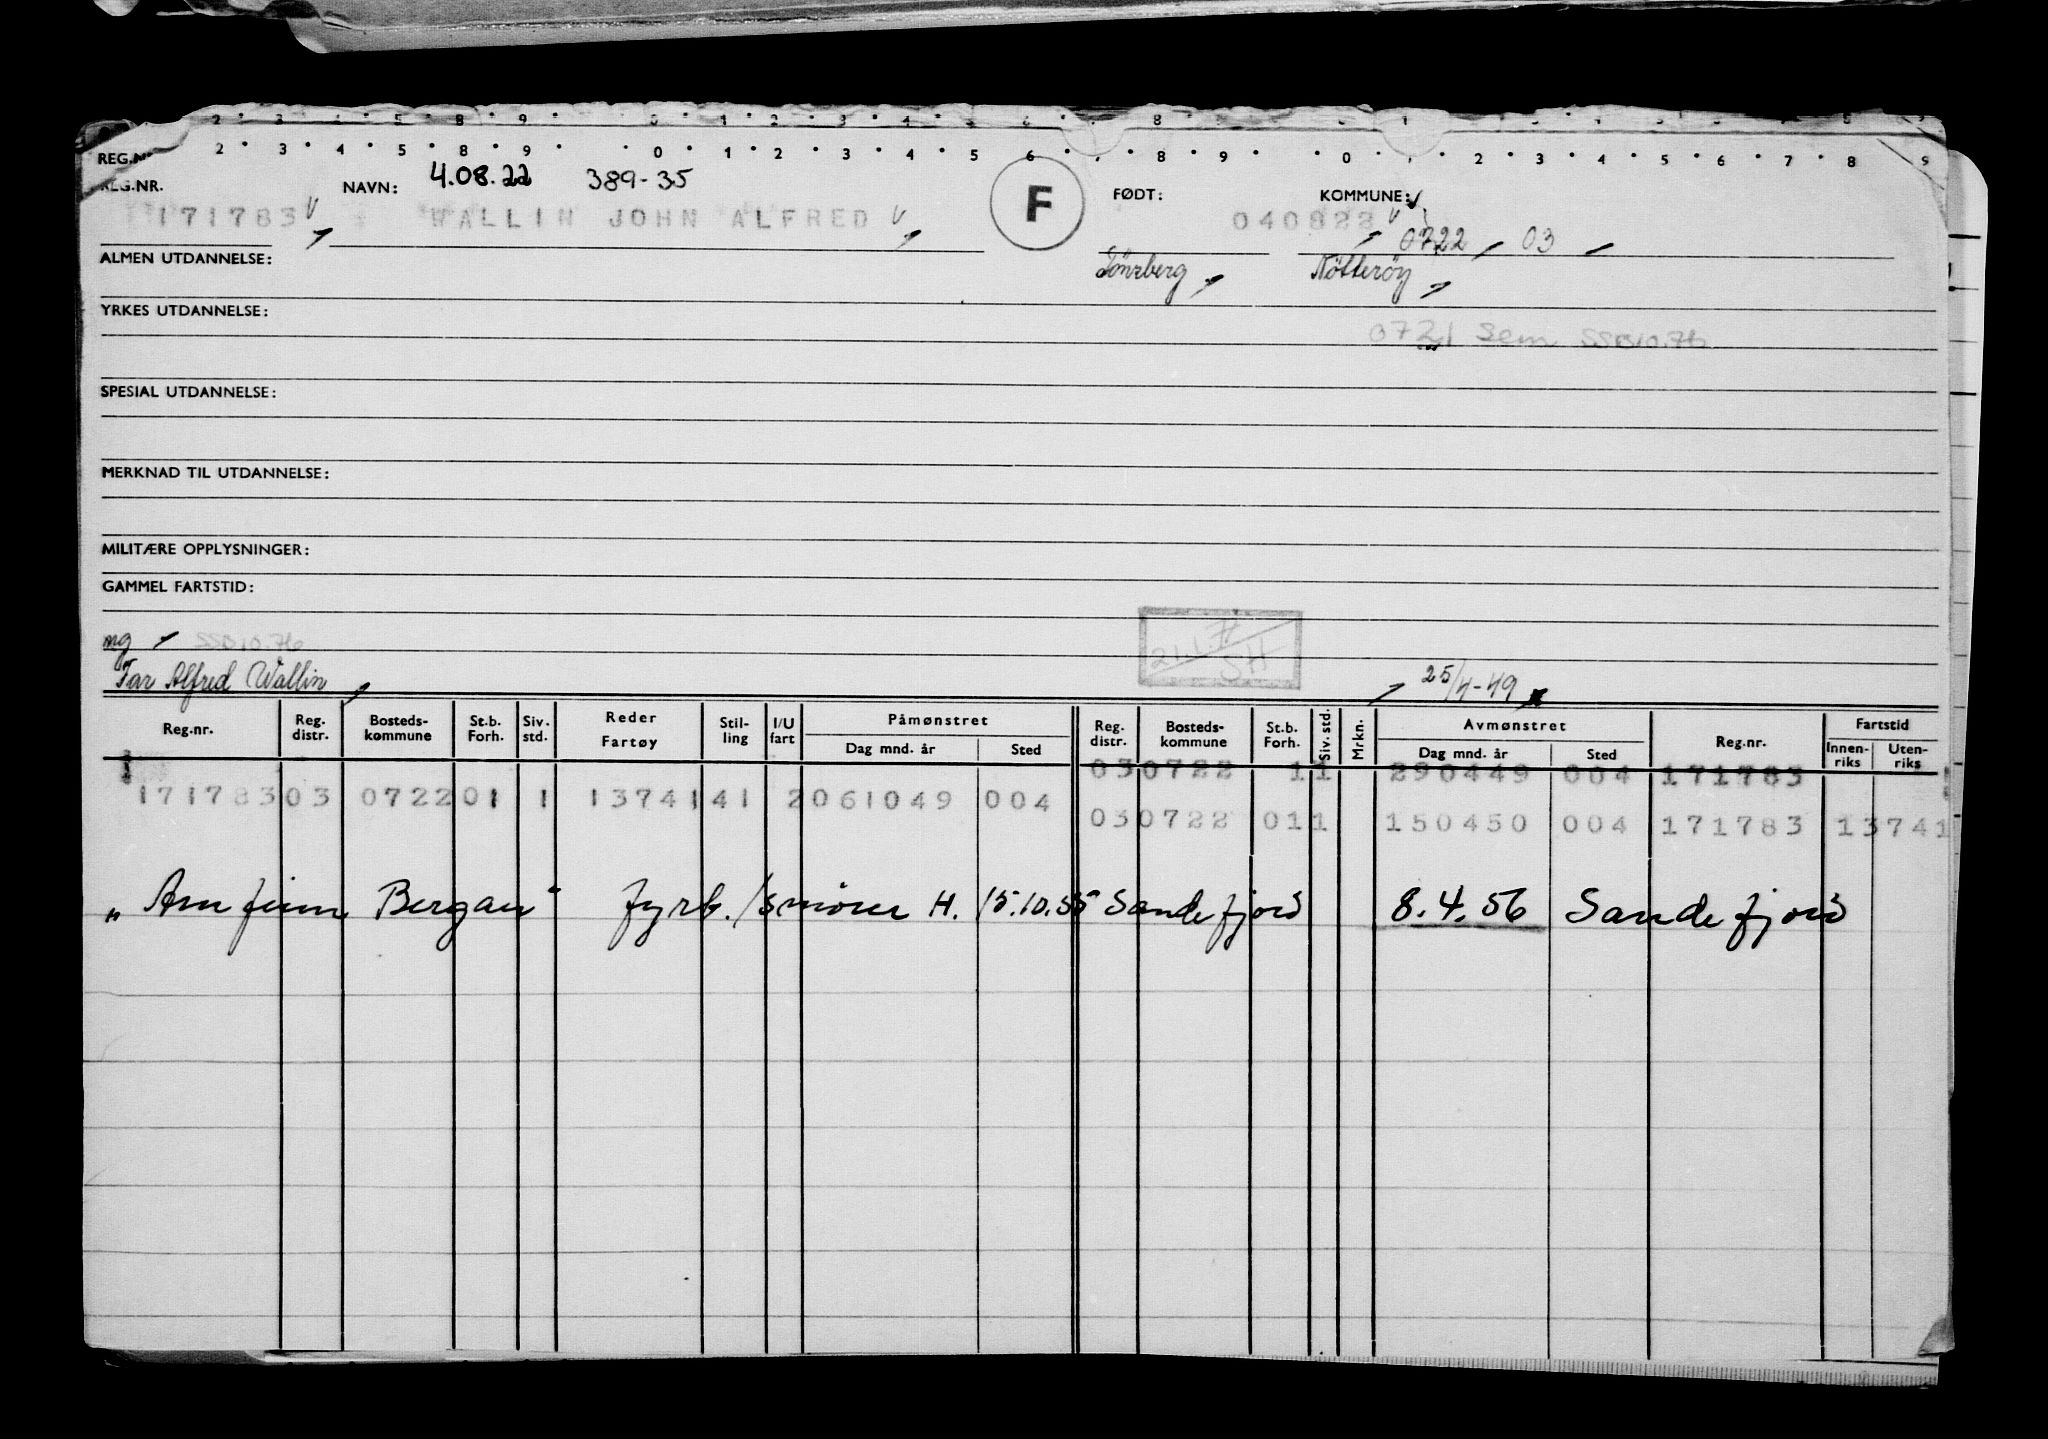 2 3 4 5 8 9 0 1 2 3 4 5 6 7 8 9 0 1 2 3 4 5 6 7 8 9
REG.NR.
NAVN: 4.08.22 389-35 F FØDT: KOMMUNE:
171783 WALLIN JOHN ALFRED 040822 0722 03
ALMEN UTDANNELSE: Tönsberg Nötteröy
YRKES UTDANNELSE:
0721 Sem SSB10.76
SPESIAL UTDANNELSE:
MERKNAD TIL UTDANNELSE:
MILITÆRE OPPLYSNINGER:
GAMMEL FARTSTID:
ng SSB10.76 21.1.71 SH
Far Alfred Wallin 25/4-49
Reg.nr. Reg. distr. Bosteds-kommune St.b. Forh. Siv. std. Reder Fartøy Stil-ling I/U fart Påmønstret Dag mnd. år Sted Reg. distr. Bosteds-kommune St.b. Forh. Siv. std. Mrkn. Avmønstret Dag mnd. år Sted Reg.nr. Fartstid Innen-riks Uten-riks
03 0722 1 1 290449 004 171783
171783 03 0722 01 1 13741 41 2 061049 004
03 0722 01 1 150450 004 171783 13741
„Arnfinn Bergan" fyrb./smører H. 15.10.55 Sandefjord 8.4.56 Sandefjord